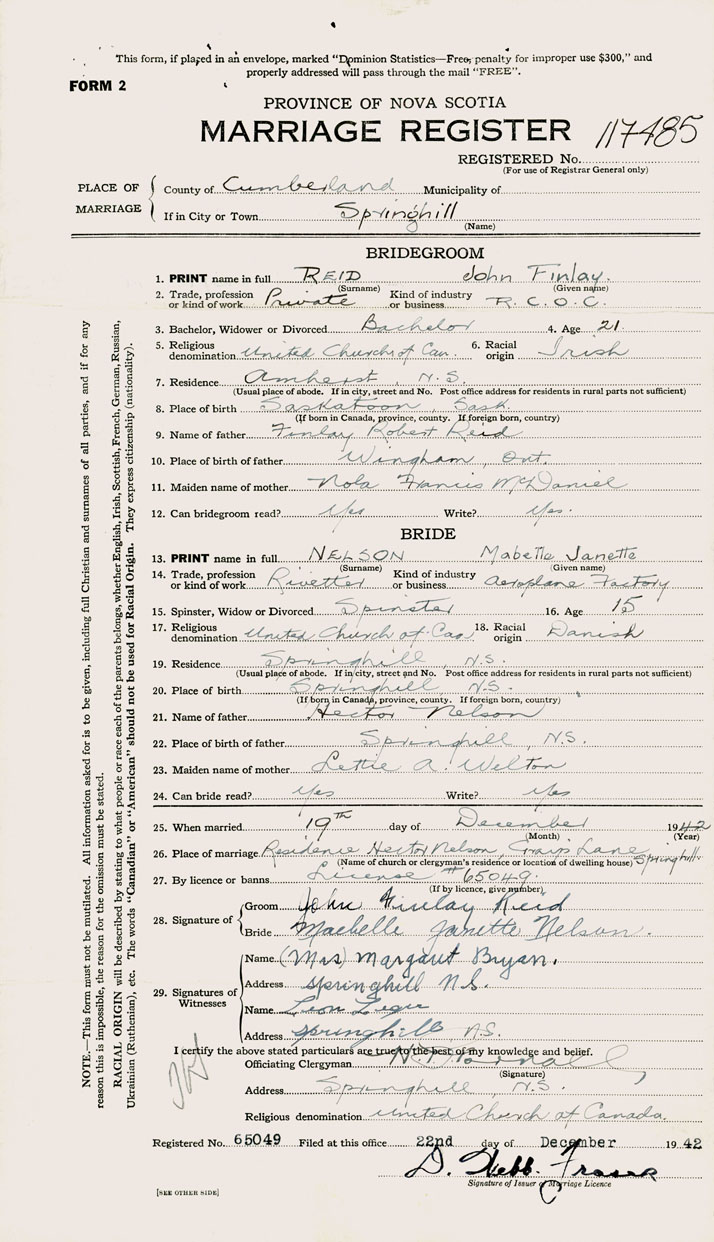 This form, if placed in an envelope, marked "Dominion Statistics—Free, penalty for improper use $300," and
properly addressed will pass through the mail "FREE".
FORM 2
PROVINCE OF NOVA SCOTIA
MARRIAGE REGISTER 117485
REGISTERED No.
(For use of Registrar General only)
PLACE OF MARRIAGE
County of Cumberland Municipality of
If in City or Town Springhill
(Name)
BRIDEGROOM
1. PRINT name in full REID John Finlay.
(Surname) (Given name)
2. Trade, profession or kind of work Private Kind of industry or business R.C.O.C.
3. Bachelor, Widower or Divorced Bachelor 4. Age 21
5. Religious denomination United Church of Can. 6. Racial origin Irish
7. Residence Amherst, N.S.
(Usual place of abode. If in city, street and No. Post office address for residents in rural parts not sufficient)
8. Place of birth Saskatoon, Sask.
(If born in Canada, province, county. If foreign born, country)
9. Name of father Finlay Robert Reid
10. Place of birth of father Wingham, Ont.
11. Maiden name of mother Nola Francis McDaniel
12. Can bridegroom read? Yes Write? Yes.
BRIDE
13. PRINT name in full NELSON Mabelle Janette
(Surname) (Given name)
14. Trade, profession or kind of work Rivetter Kind of industry or business Aeroplane Factory
15. Spinster, Widow or Divorced Spinster 16. Age 15
17. Religious denomination United Church of Can 18. Racial origin Danish
19. Residence Springhill, N.S.
(Usual place of abode. If in city, street and No. Post office address for residents in rural parts not sufficient)
20. Place of birth Springhill, N.S.
(If born in Canada, province, county. If foreign born, country)
21. Name of father Hector Nelson
22. Place of birth of father Springhill, N.S.
23. Maiden name of mother Lettie A. Welton
24. Can bride read? Yes Write? Yes
25. When married 19th day of December 1942
(Month) (Year)
26. Place of marriage Residence Hector Nelson Lane Springhill
(Name of church or clergyman's residence or location of dwelling house)
27. By licence or banns License #65049
(If by licence, give number)
28. Signature of
Groom John Finlay Reid
Bride Maebelle Janette Nelson.
29. Signatures of Witnesses
Name (Mrs) Margaret Bryan.
Address Springhill N.S.
Name Leon
Address Springhill N.S.
I certify the above stated particulars are true to the best of my knowledge and belief.
Officiating Clergyman
(Signature)
Address Springhill, N.S.
Religious denomination United Church of Canada.
Registered No. 65049 Filed at this office 22nd day of December 1942
D. Webb. Fraser
Signature of Issuer of Marriage Licence
[SEE OTHER SIDE]
NOTE.—This form must not be mutilated. All information asked for is to be given, including full Christian and surnames of all parties, and if for any
reason this is impossible, the reason for the omission must be stated.
RACIAL ORIGIN will be described by stating to what people or race each of the parents belongs, whether English, Irish, Scottish, French, German, Russian,
Ukrainian (Ruthenian), etc. The words "Canadian" or "American" should not be used for Racial Origin. They express citizenship (nationality).